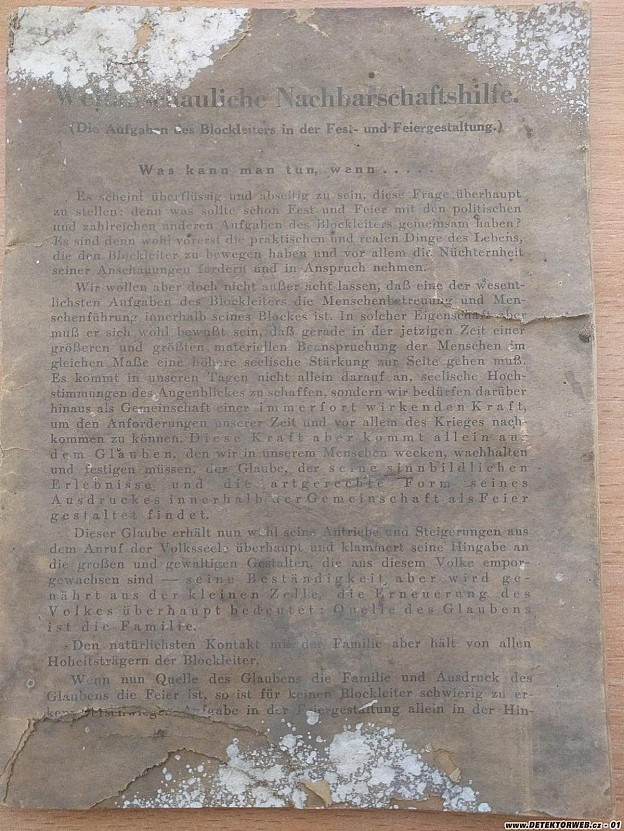 Weltanschauliche Nachbarschaftshilfe.
(Die Aufgaben des Blockleiters in der Fest- und Feiergestaltung.)
Was kann man tun, wenn . . . . .
Es scheint überflüssig und abseitig zu sein, diese Frage überhaupt
zu stellen: denn was sollte schon Fest und Feier mit den politischen
und zahlreichen anderen Aufgaben des Blockleiters gemeinsam haben?
Es sind denn wohl vorerst die praktischen und realen Dinge des Lebens,
die den Blockleiter zu bewegen haben und vor allem die Nüchternheit
seiner Anschauungen fordern und in Anspruch nehmen.
Wir wollen aber doch nicht außer acht lassen, daß eine der wesent-
lichsten Aufgaben des Blockleiters die Menschenbetreuung und Men-
schenführung innerhalb seines Blockes ist. In solcher Eigenschaft aber
muß er sich wohl bewußt sein, daß gerade in der jetzigen Zeit einer
größeren und größten materiellen Beanspruchung der Menschen im
gleichen Maße eine höhere seelische Stärkung zur Seite gehen muß.
Es kommt in unseren Tagen nicht allein darauf an, seelische Hoch-
stimmungen des Augenblickes zu schaffen, sondern wir bedürfen darüber
hinaus als Gemeinschaft einer immerfort wirkenden Kraft,
um den Anforderungen unserer Zeit und vor allem des Krieges nach-
kommen zu können. Diese Kraft aber kommt allein aus
dem Glauben, den wir in unserem Menschen wecken, wachhalten
und festigen müssen, der Glaube, der seine sinnbildlichen
Erlebnisse und die artgerechte Form seines
Ausdruckes innerhalb der Gemeinschaft als Feier
gestaltet findet.
Dieser Glaube erhält nun wohl seine Antriebe und Steigerungen aus
dem Anruf der Volksseele überhaupt und klammert seine Hingabe an
die großen und gewaltigen Gestalten, die aus diesem Volke empor-
gewachsen sind — seine Beständigkeit aber wird ge-
nährt aus der kleinen Zelle, die Erneuerung des
Volkes überhaupt bedeutet: Quelle des Glaubens
ist die Familie.
Den natürlichsten Kontakt mit der Familie aber hält von allen
Hoheitsträgern der Blockleiter.
Wenn nun Quelle des Glaubens die Familie und Ausdruck des
Glaubens die Feier ist, so ist für keinen Blockleiter schwierig zu er-
Aufgabe in der Feiergestaltung allein in der Hin-
www.DETEKTORWEB.cz - 01